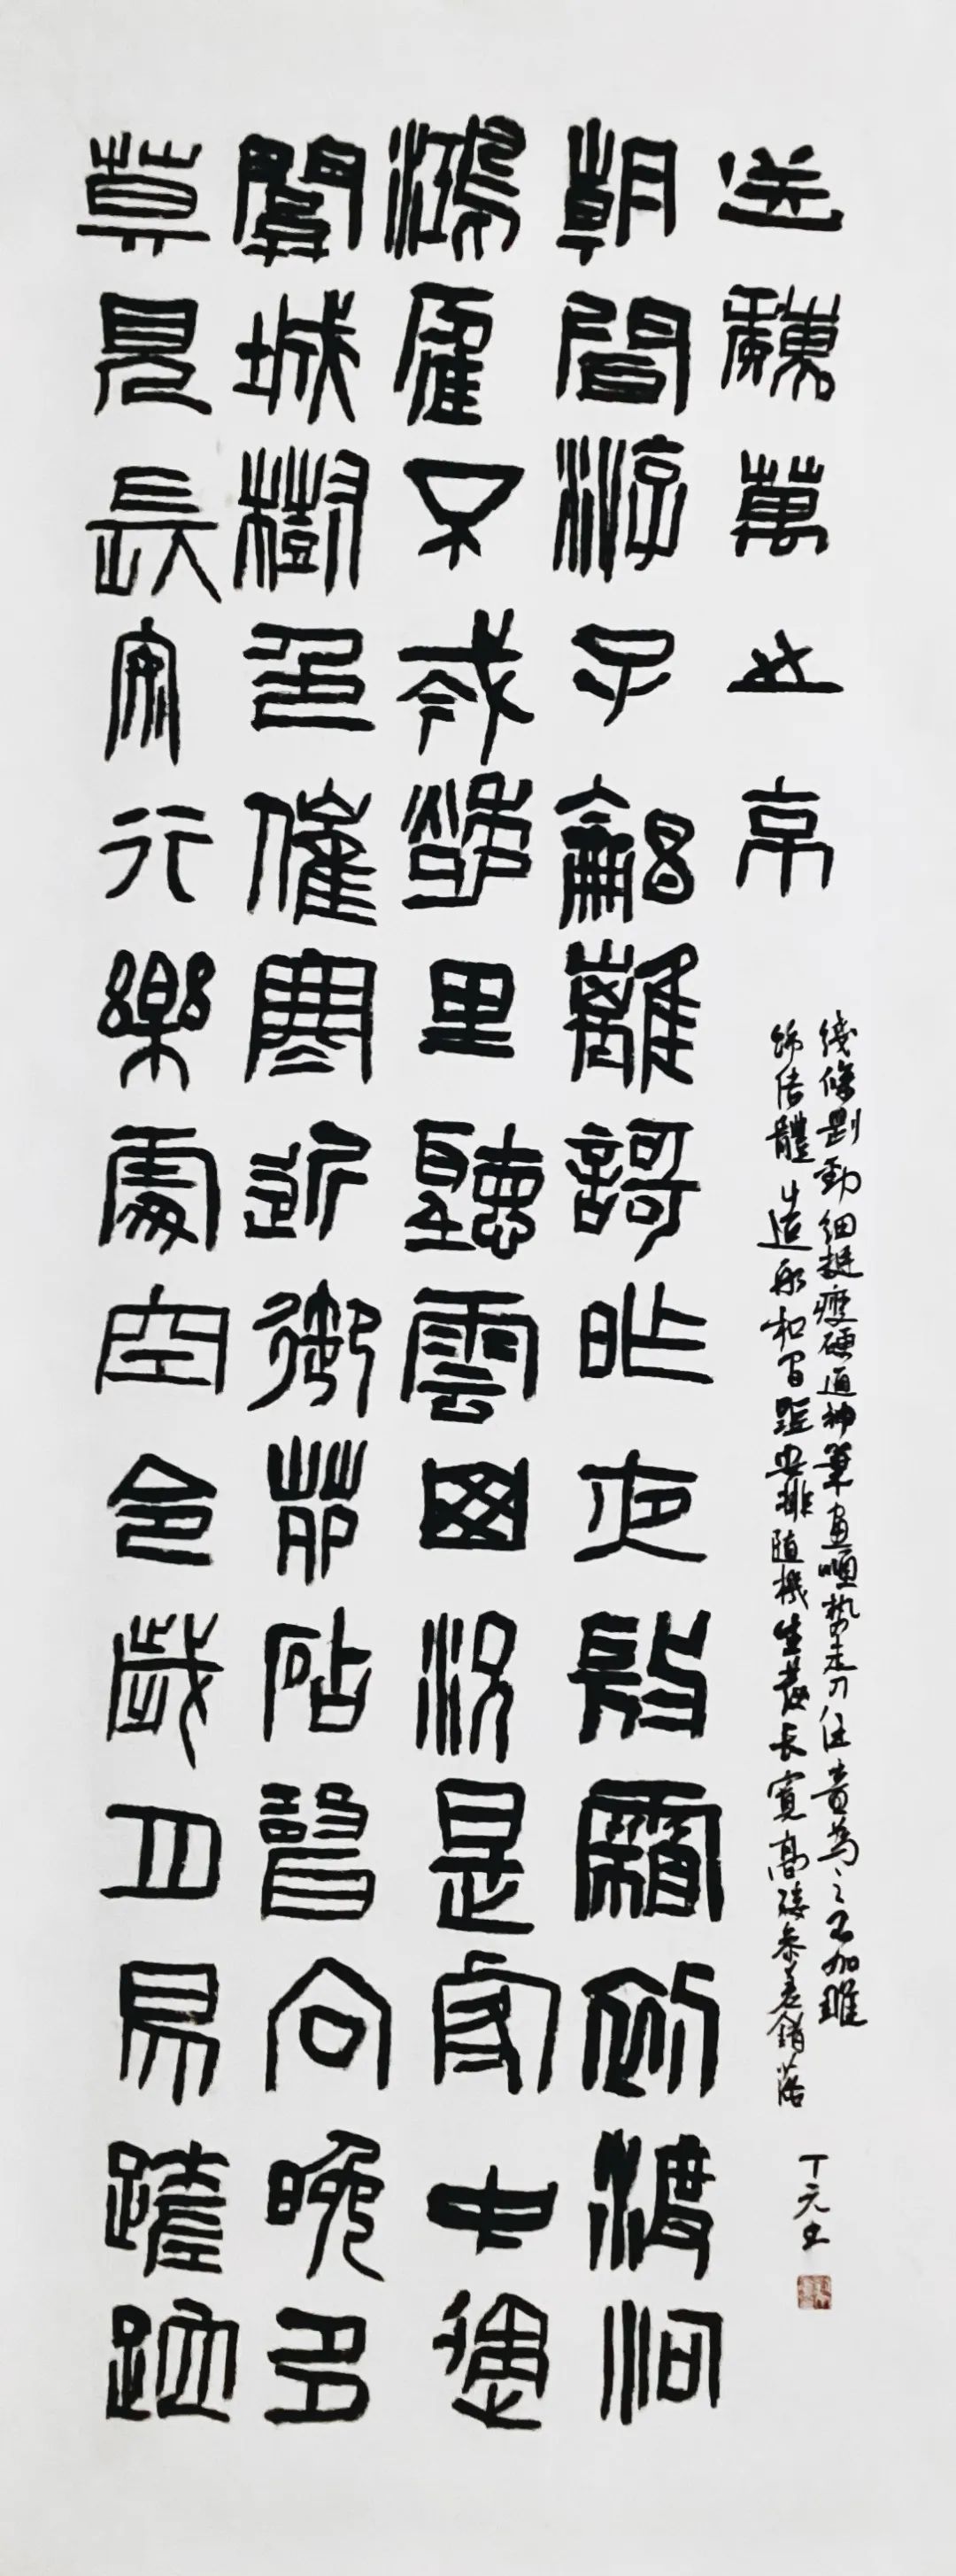 送魏萬之京
朝聞游子唱離謌昨夜微霜初渡河
鴻雁不堪愁里聽雲山況是客中過
關城樹色催寒近御苑砧聲向晚多
莫見長安行樂處空令歲月易蹉跎
綫條剛勁細挺瘦硬通神筆畫順勢走刀任意為之不加雕
飾結體造形和間距安排随機生發長寬高矮參差錯落
丁元書